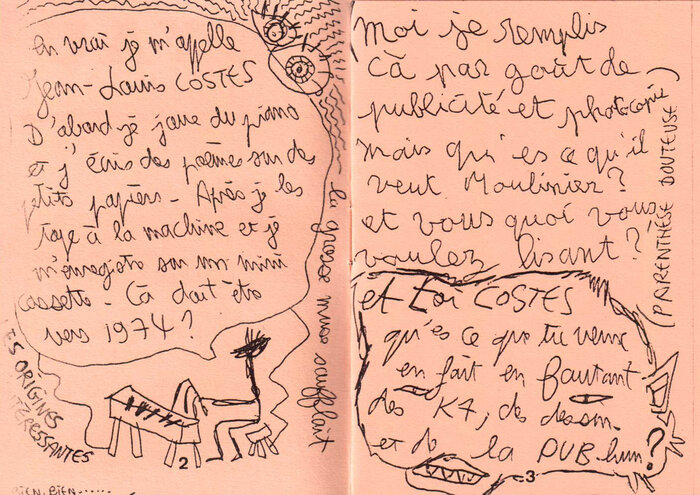 en vrai je m'appelle
Jean-Louis COSTES
D'abord je joue du piano
et j'écris des poèmes sur des
petits papiers - Après je les
tape à la machine et je
m'enregistre sur un mini
cassette - Cà doit être
vers 1974 ?
la grosse muse soufflait
ES ORIGINES
TERESSANTES
2
BIEN, BIEN......
(Moi je remplis
Cà par goût de
publicité et photocopie
mais qu'es ce qu'il
veut Moulinier ?
et vous quoi vous
voulez lisant ?
(PARENTHÈSE DOUTEUSE)
et toi COSTES
qu'es ce que tu veux
en fait en foutant
des K7, des dessin-
et de la PUB hum ?
-3